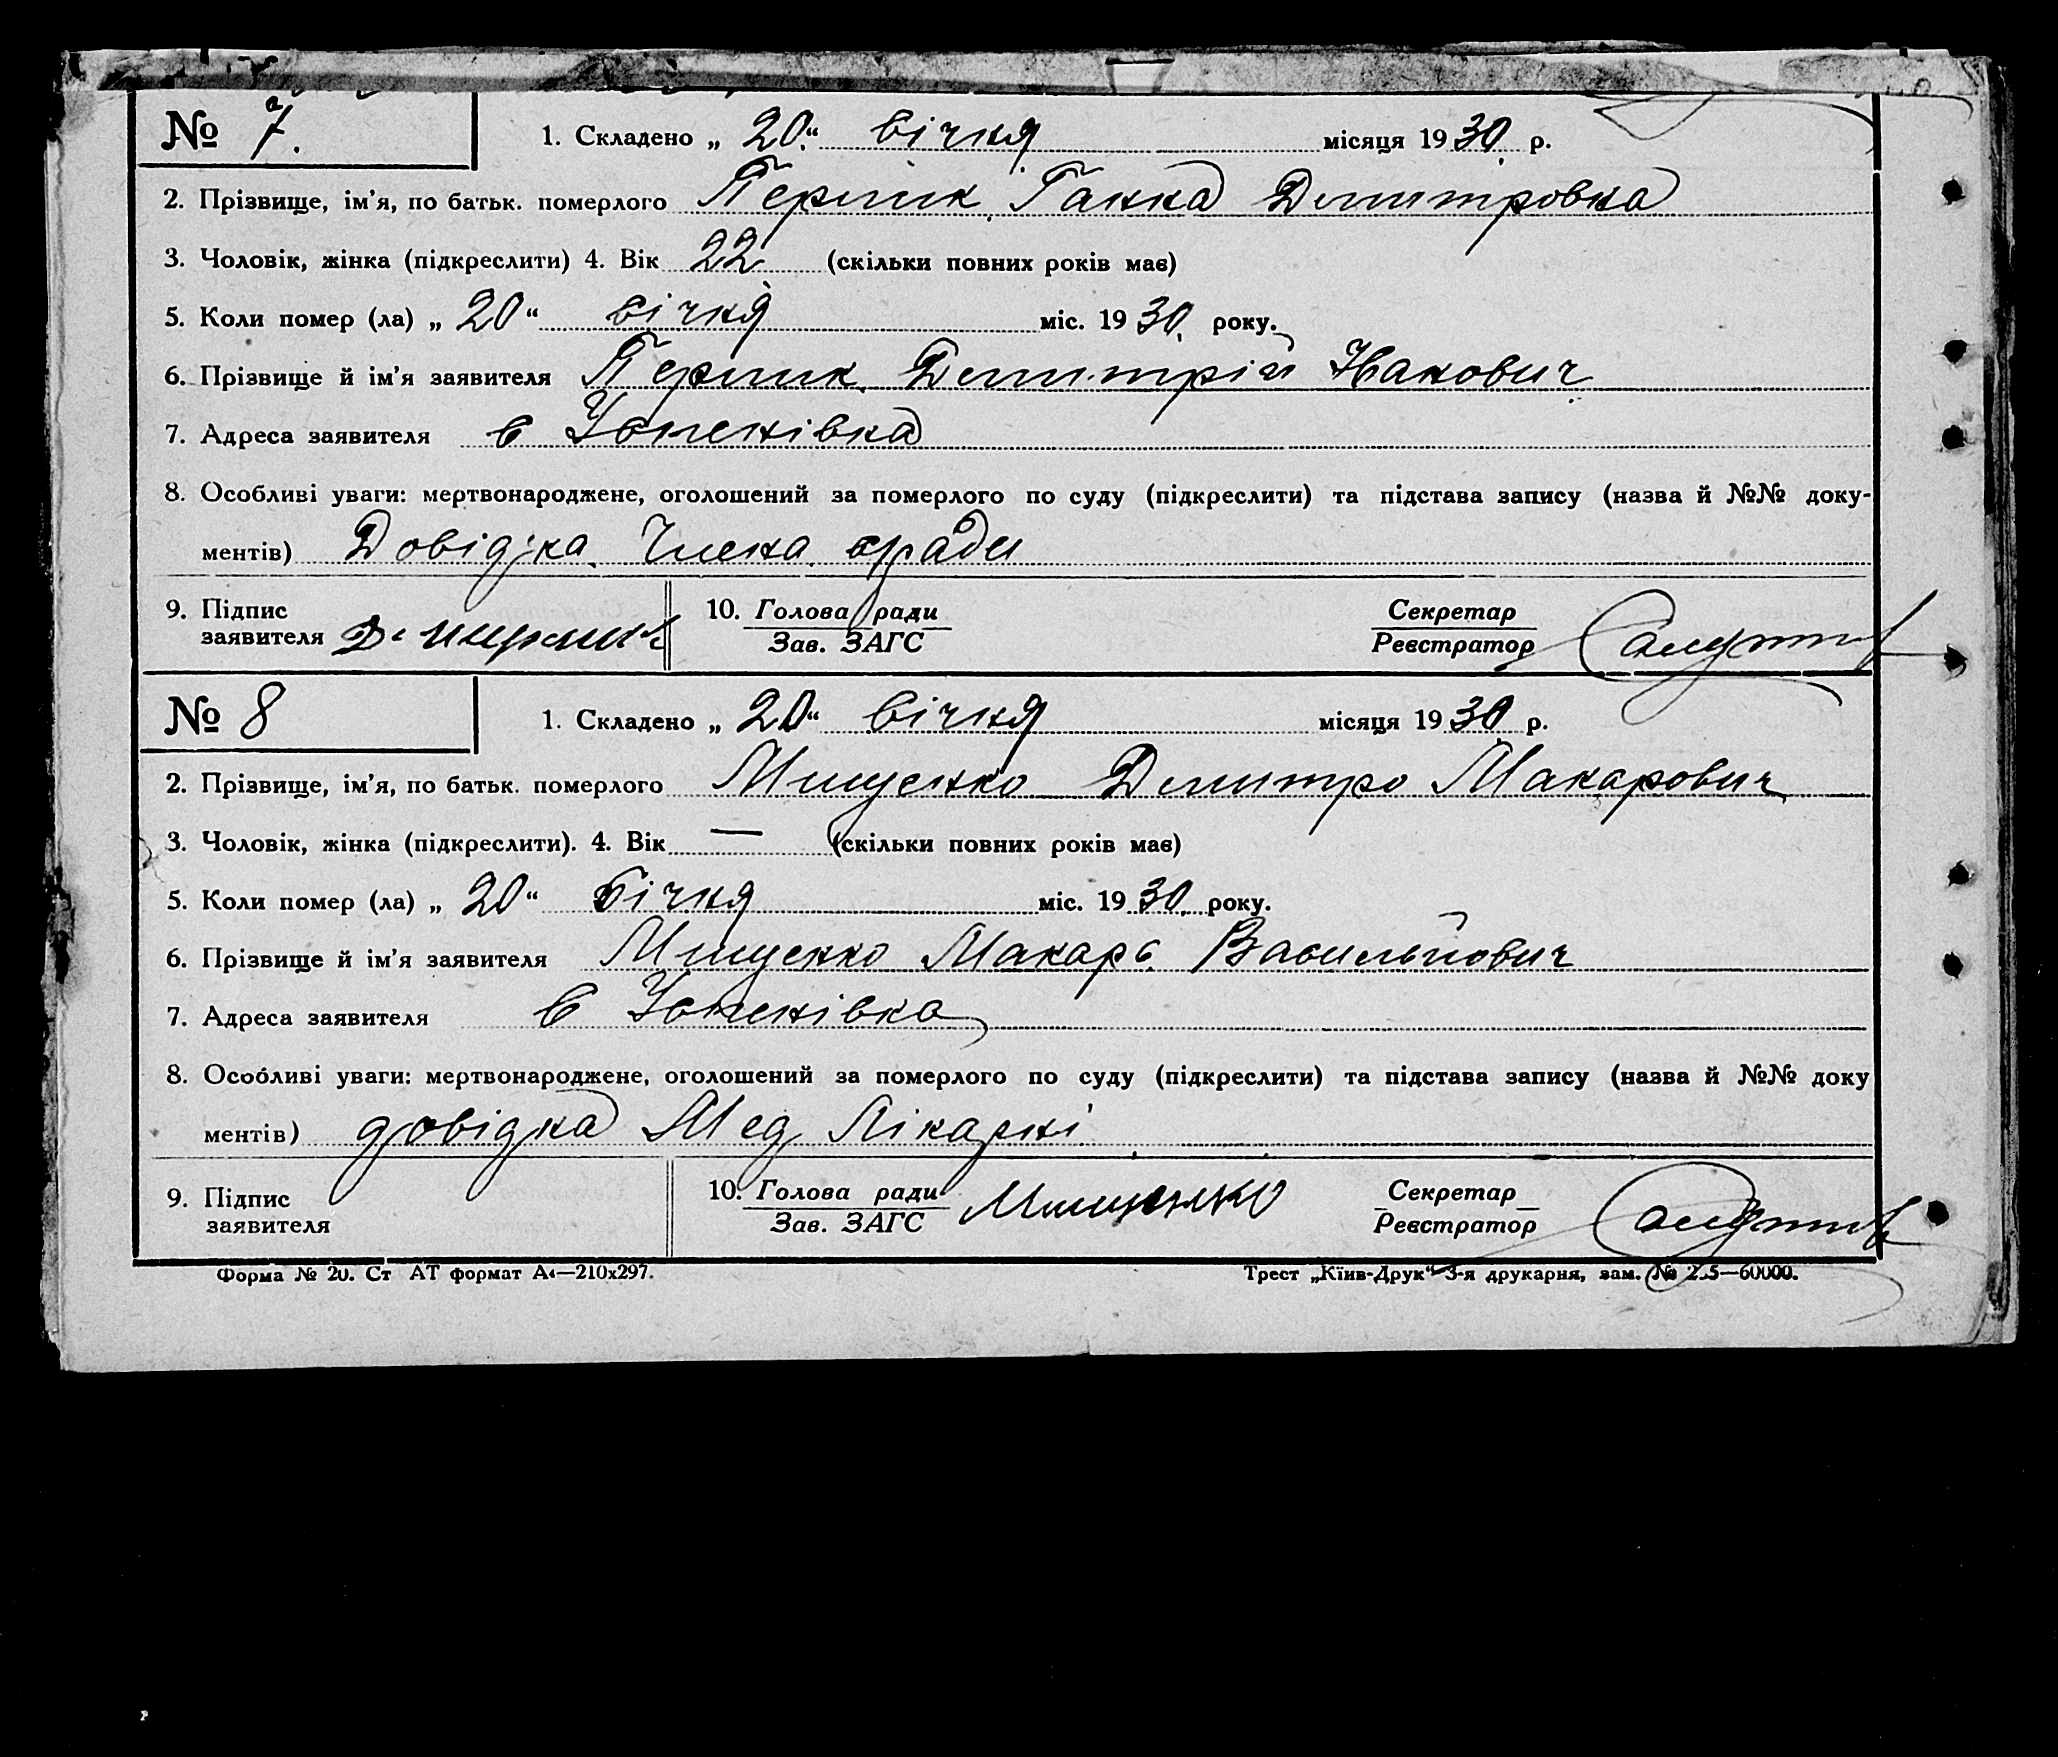 № 7. 1. Складено „20“ січня місяця 1930 р.
2. Прізвище, ім’я, по батьк. померлого Перлик Ганна Демитровна
3. Чоловік, жінка (підкреслити) 4. Вік 22 (скільки повних років має)
5. Коли помер (ла) „20“ січня міс. 1930 року.
6. Прізвище й ім’я заявителя Перлик Демитрій
7. Адреса заявителя с
8. Особливі уваги: мертвонароджене, оголошений за померлого по суду (підкреслити) та підстава запису (назва й №№ доку-
ментів) Довідка Члена с/ради
9. Підпис 10. Голова ради Секретар
заявителя Зав. ЗАГС Реєстратор
№ 8 1. Складено „20“ січня місяця 1930 р.
2. Прізвище, ім’я, по батьк. померлого Мищенко Демитро Макарович
3. Чоловік, жінка (підкреслити). 4. Вік — (скільки повних років має)
5. Коли помер (ла) „20“ січня міс. 1930 року.
6. Прізвище й ім’я заявителя Мищенко Макарь Васильйович
7. Адреса заявителя с
8. Особливі уваги: мертвонароджене, оголошений за померлого по суду (підкреслити) та підстава запису (назва й №№ доку
ментів) довідка Мед Лікарні
9. Підпис 10. Голова ради Мищенко Секретар
заявителя Зав. ЗАГС Реєстратор
Форма № 20. Ст АТ формат А4—210x297. Трест „Київ-Друк“ 3-я друкарня, зам. №